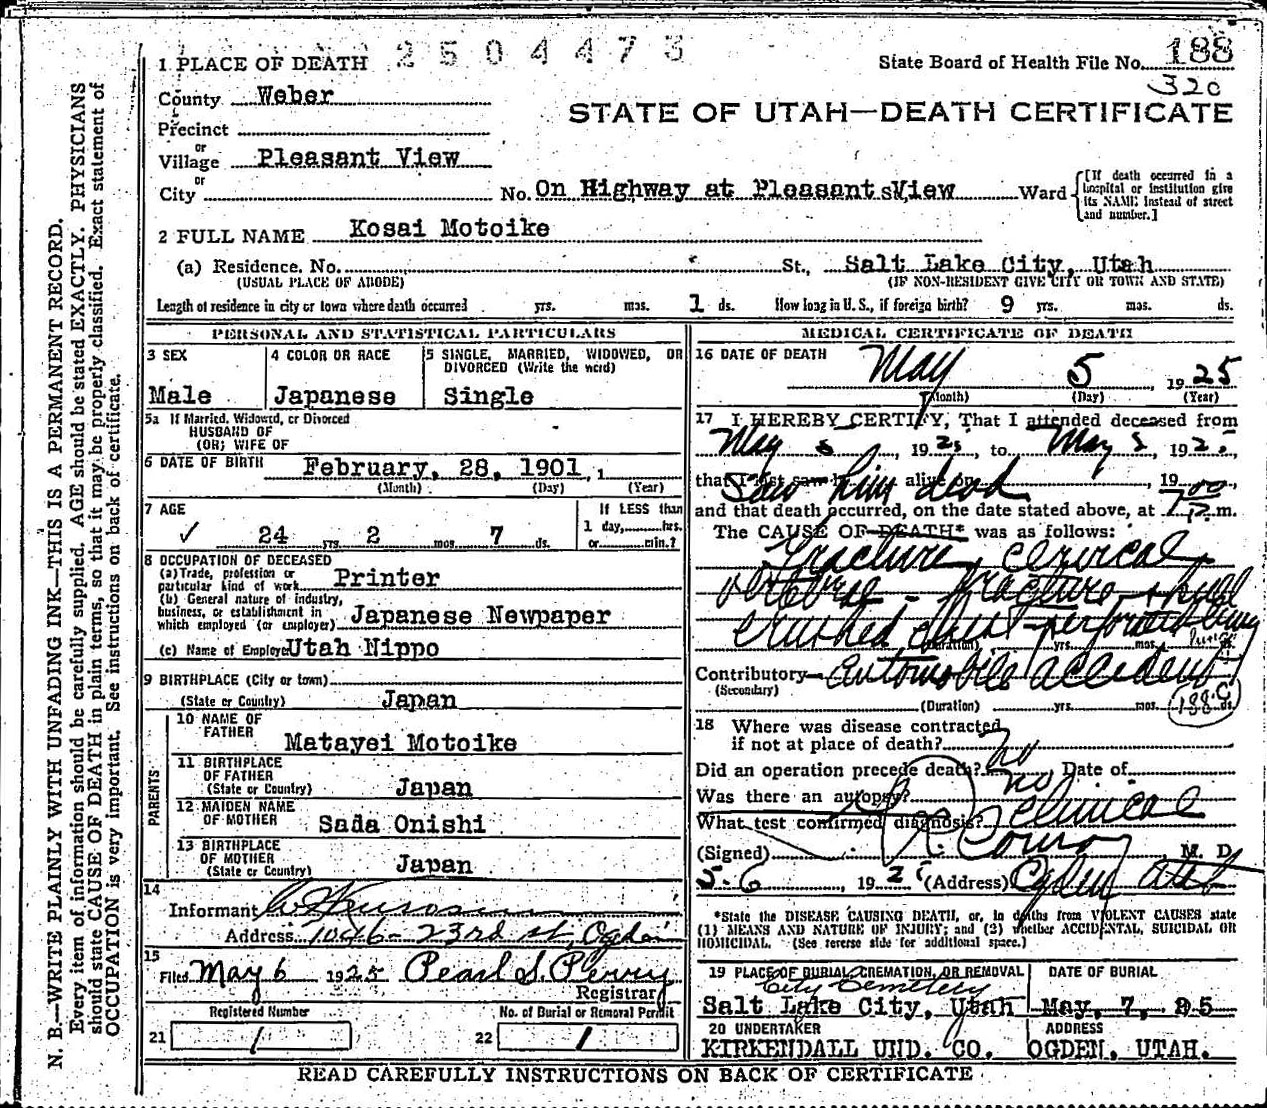 2504473
1 PLACE OF DEATH
State Board of Health File No. 188
320
County Weber
STATE OF UTAH—DEATH CERTIFICATE
Precinct
or
Village Pleasant View
or
City
No. On Highway at Pleasant View St., Ward
[If death occurred in a hospital or institution give its NAME instead of street and number.]
2 FULL NAME Kosai Motoike
(a) Residence. No. St., Salt Lake City, Utah
(USUAL PLACE OF ABODE) (IF NON-RESIDENT GIVE CITY OR TOWN AND STATE)
Length of residence in city or town where death occurred yrs. mos. 1 ds. How long in U. S., if foreign birth? 9 yrs. mos. ds.
PERSONAL AND STATISTICAL PARTICULARS
3 SEX
Male
4 COLOR OR RACE
Japanese
5 SINGLE, MARRIED, WIDOWED, OR DIVORCED (Write the word)
Single
5a If Married, Widowed, or Divorced
HUSBAND OF
(OR) WIFE OF
6 DATE OF BIRTH February, 28, 1901
(Month) (Day) (Year)
7 AGE
24 yrs. 2 mos. 7 ds.
If LESS than
1 day, hrs.
or min.?
8 OCCUPATION OF DECEASED
(a) Trade, profession or
particular kind of work Printer
(b) General nature of industry,
business, or establishment in
which employed (or employer) Japanese Newpaper
(c) Name of Employer Utah Nippo
9 BIRTHPLACE (City or town)
(State or Country) Japan
PARENTS
10 NAME OF
FATHER
Matayei Motoike
11 BIRTHPLACE
OF FATHER
(State or Country) Japan
12 MAIDEN NAME
OF MOTHER Sada Onishi
13 BIRTHPLACE
OF MOTHER
(State or Country) Japan
14
Informant
Address 1046-23rd st, Ogden
15
Filed May 6 1925 Pearl S. Perry
Registrar
Registered Number
21 1
No. of Burial or Removal Permit
22 1
MEDICAL CERTIFICATE OF DEATH
16 DATE OF DEATH
May 5, 1925
(Month) (Day) (Year)
17 I HEREBY CERTIFY, That I attended deceased from
May 5, 1925, to May 5 1925,
that I last saw h alive on, 19
Saw him dead
and that death occurred, on the date stated above, at 7 00 P. m.
The CAUSE OF DEATH* was as follows:
Fracture cervical
vertebrae - fracture skull
crushed chest - perforating
lung
(Duration) yrs. mos. ds.
Contributory Automobile accident
(Secondary)
(Duration) yrs. mos. ds.
188 C
18 Where was disease contracted
if not at place of death?
Did an operation precede death? no Date of
Was there an autopsy? no
What test confirmed diagnosis? Clinical
(Signed) Conroy, M. D.
5-6, 1925 (Address) Ogden Utah
*State the DISEASE CAUSING DEATH, or, in deaths from VIOLENT CAUSES state
(1) MEANS AND NATURE OF INJURY; and (2) whether ACCIDENTAL, SUICIDAL OR
HOMICIDAL. (See reverse side for additional space.)
19 PLACE OF BURIAL, CREMATION, OR REMOVAL
City Cemetery
Salt Lake City, Utah
DATE OF BURIAL
May, 7, 25
20 UNDERTAKER
KIRKENDALL UND. CO.
ADDRESS
OGDEN, UTAH.
READ CAREFULLY INSTRUCTIONS ON BACK OF CERTIFICATE
N. B.—WRITE PLAINLY WITH UNFADING INK—THIS IS A PERMANENT RECORD.
Every item of information should be carefully supplied. AGE should be stated EXACTLY. PHYSICIANS
should state CAUSE OF DEATH in plain terms, so that it may be properly classified. Exact statement of
OCCUPATION is very important. See instructions on back of certificate.